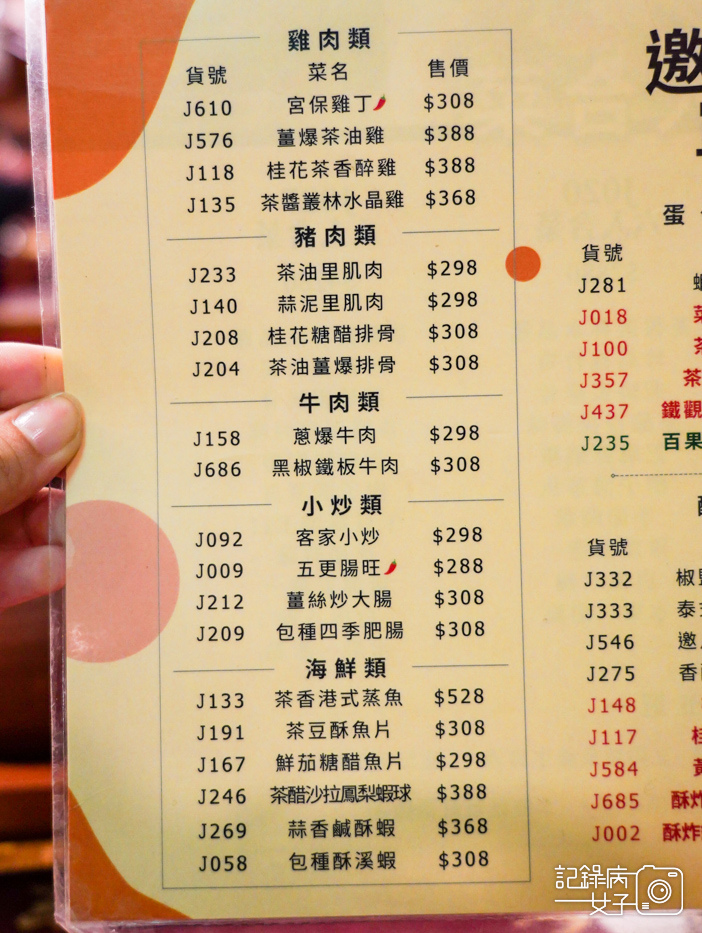 雞肉類
貨號 菜名 售價
J610 宮保雞丁 $308
J576 薑爆茶油雞 $388
J118 桂花茶香醉雞 $388
J135 茶醬叢林水晶雞 $368
豬肉類
J233 茶油里肌肉 $298
J140 蒜泥里肌肉 $298
J208 桂花糖醋排骨 $308
J204 茶油薑爆排骨 $308
牛肉類
J158 蔥爆牛肉 $298
J686 黑椒鐵板牛肉 $308
小炒類
J092 客家小炒 $298
J009 五更腸旺 $288
J212 薑絲炒大腸 $308
J209 包種四季肥腸 $308
海鮮類
J133 茶香港式蒸魚 $528
J191 茶豆酥魚片 $308
J167 鮮茄糖醋魚片 $298
J246 茶醋沙拉鳳梨蝦球 $388
J269 蒜香鹹酥蝦 $368
J058 包種酥溪蝦 $308
邀
蛋
貨號
J281
J018
J100
J357 茶
J437 鐵觀
J235 百果
貨號
J332 椒
J333 泰
J546 邀
J275 香
J148
J117
J584
J685 酥炸
J002 酥炸
記錄病
女子